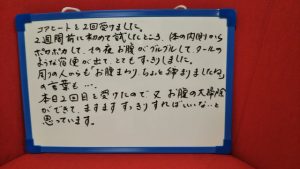 コアヒートを2回受けました。
2週間前に初めて試したところ、体の内側から
ポカポカして、その夜お腹がグルグルして、タール
のような宿便が出て、とてもすっきりしました。
周りの人からも「お腹まわりちょっと締まりましたね」
の言葉も…。
本日2回目を受けたので又お腹の大掃除
ができて、ますますすっきりすればいいな…と
思っています。